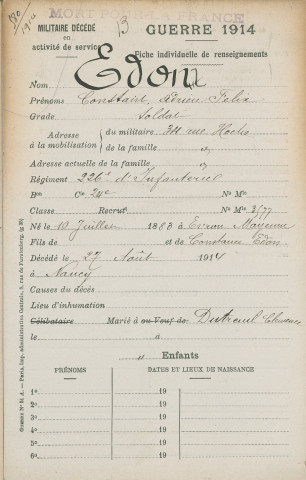 180
1914
MORT POUR LA FRANCE
B
MILITAIRE DÉCÉDÉ
en
activité de service
GUERRE 1914
Fiche individuelle de renseignements
Nom Edon
Prénoms Constant, Félix
Grade Soldat
Adresse à la mobilisation du militaire 34 rue Hoche
de la famille "
Adresse actuelle de la famille "
Régiment 226e d'Infanterie
Bon Cie 24e No Mle
Classe Recrut No Mle
Né le 10 Juillet 1883 à Evron Mayenne
Fils de et de Constance Edon
Décédé le 27 Août 1914
à Nancy
Causes du décès
Lieu d'inhumation
Célibataire Marié à ou Veuf de Dutreuil Clémence
le à
" Enfants
PRÉNOMS DATES ET LIEUX DE NAISSANCE
1o 19
2o 19
3o 19
4o 19
5o 19
6o 19